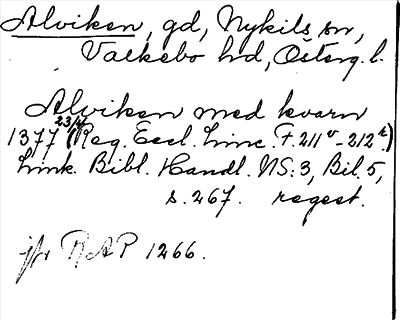 Alviken, gd, Nykils sn,
Valkebo hd, Österg. l.
Alviken med kvarn
1377 23/4 (Reg. Eccl. Linc. F. 211v-212r)
Link. Bibl. Handl. NS: 3, Bil. 5,
s. 267. regest.
jfr RAP 1266.